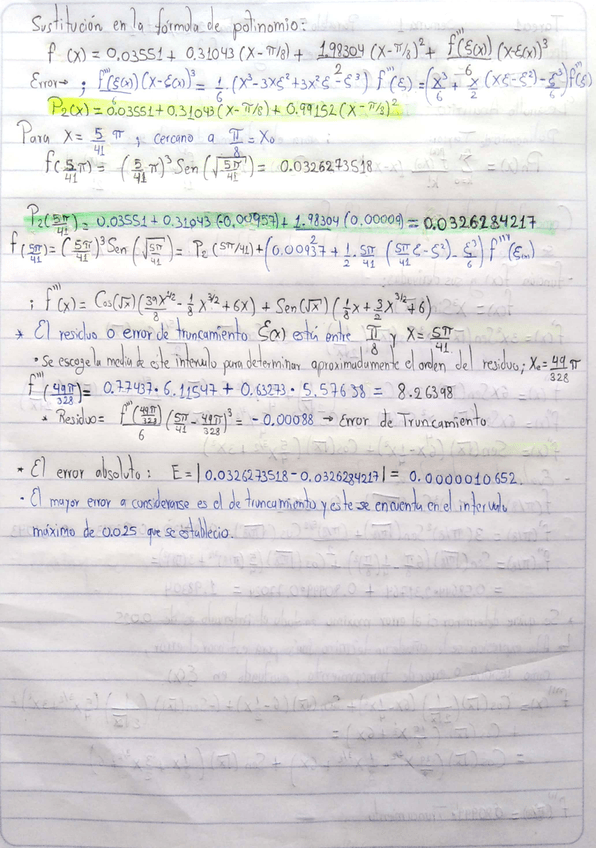 Sustitución en la fórmula de polinomio:
f (x) = 0.03551 + 0.31043 (x - π/8) + 1.98304/2 (x - π/8)² + f'''(ξ(x))/6 (x - ξ(x))³
Error → ; f'''(ξ(x))/6 (x - ξ(x))³ = 1/6 (x³ - 3xξ² + 3x²ξ - ξ³) f'''(ξ) = (x³/6 + x/2 (xξ - ξ²) - ξ³/6) f'''(ξ)
P₂(x) = 0.03551 + 0.31043 (x - π/8) + 0.99152 (x - π/8)²
Para x = 5/41 π, cercano a π/8 = x₀
f(5/41 π) = (5/41 π)³ Sen(√(5π/41)) = 0.0326273518
P₂(5π/41) = 0.03551 + 0.31043 (-0.00957) + 1.98304/2 (0.00009) = 0.0326284217
f(5π/41) = (5π/41)³ Sen(√(5π/41)) = P₂(5π/41) + (0.00937 + 1/2 · 5π/41 (5π/41 ξ - ξ²) - ξ³/6) f'''(ξ(x))
; f'''(x) = Cos(√x)(39x^(1/2)/8 - 1/8 x^(3/2) + 6x) + Sen(√x)(1/8 x + 3/2 x^(3/2) + 6)
→ El residuo o error de truncamiento ξ(x) está entre π/8 y x = 5π/41
• Se escoge la media de este intervalo para determinar aproximadamente el orden del residuo; x₀ = 49π/328
f'''(49π/328) = 0.77437 · 6.11547 + 0.63273 · 5.57638 = 8.26398
* Residuo = f'''(49π/328)/6 (5π/41 - 49π/328)³ = -0.00088 → Error de Truncamiento
* El error absoluto: E = |0.0326273518 - 0.0326284217| = 0.0000010652.
• El mayor error a considerarse es el de truncamiento y este se encuenta en el intervalo
máximo de 0.025 que se establecio.